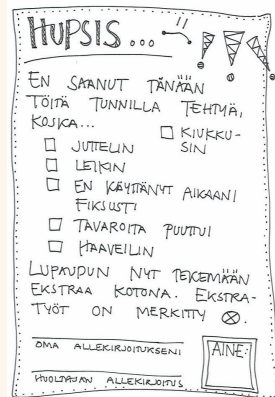 HUPSIS...
EN SAANUT TÄNÄÄN
TÖITÄ TUNNILLA TEHTYÄ,
KOSKA...
KIUKKU-
SIN
JUTTELIN
LEIKIN
EN KÄYTTÄNYT AIKAANI
FIKSUSTI
TAVAROITA PUUTTUI
HAAVEILIN
LUPAUDUN NYT TEKEMÄÄN
EKSTRAA KOTONA. EKSTRA-
TYÖT ON MERKITTY ⊗.
OMA ALLEKIRJOITUKSENI
AINE:
HUOLTAJAN ALLEKIRJOITUS